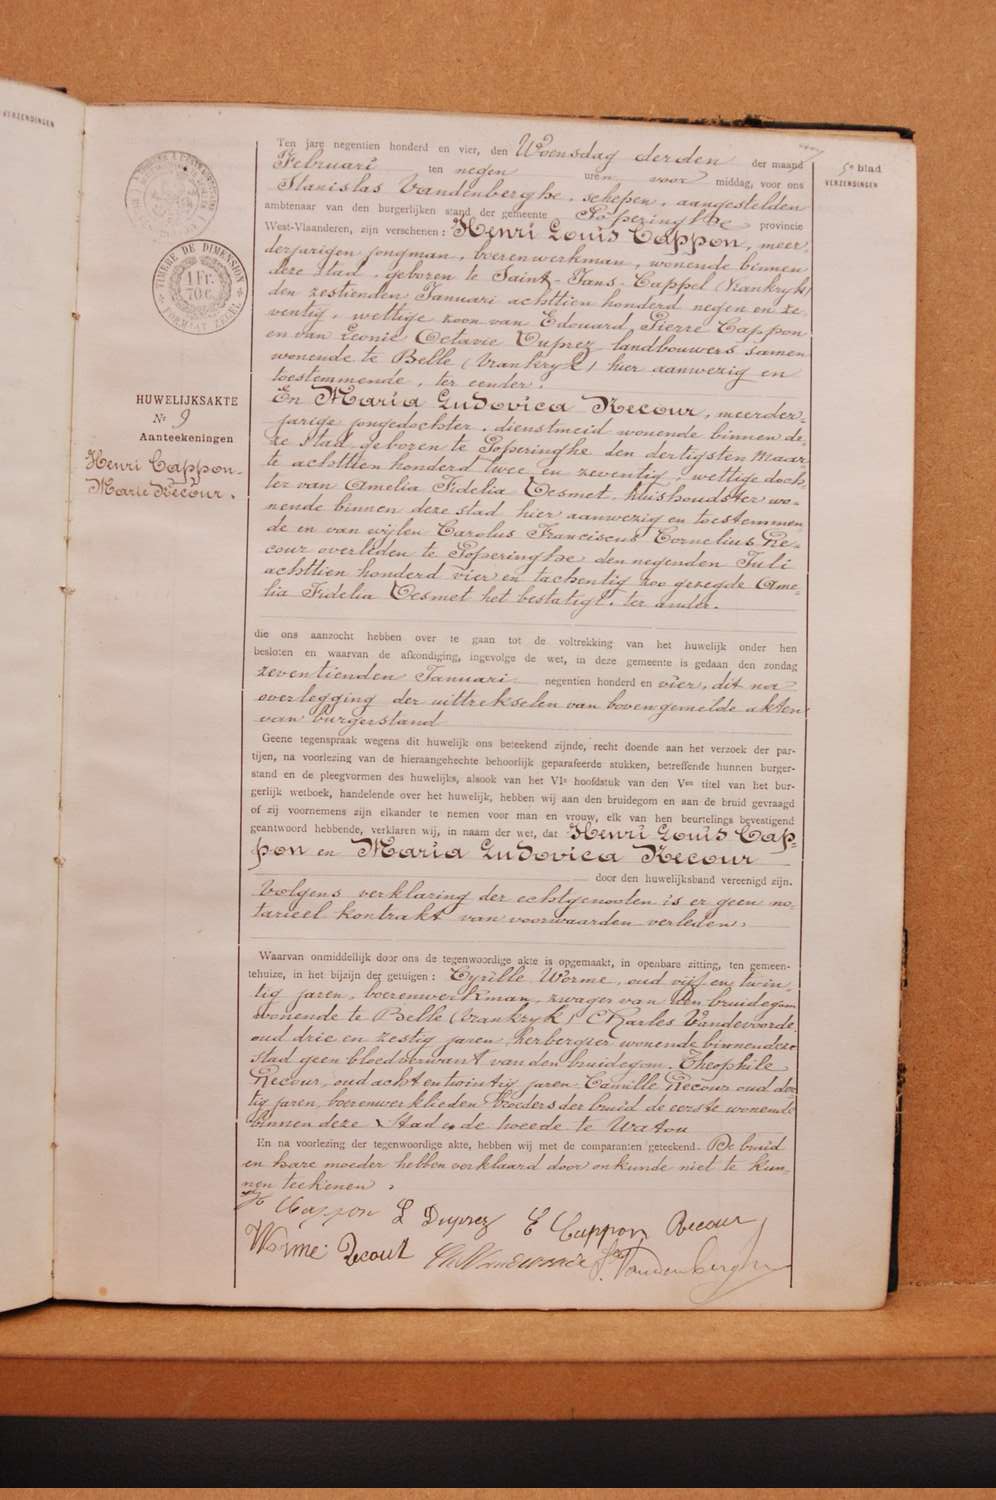 VERZENDINGEN
5e blad
VERZENDINGEN
TIMBRE DE DIMENSION
1 Fr.
70 c.
FORMAAT ZEGEL
HUWELIJKSAKTE
No 9
Aanteekeningen
Henri Cappon-
Marie Recour.
Ten jare negentien honderd en vier, den Woensdag derden der maand
Februari ten negen uren voor middag, voor ons
Stanislas Vandenberghe, schepen, aangestelden
ambtenaar van den burgerlijken stand der gemeente Poperinghe provincie
West-Vlaanderen, zijn verschenen: Henri Louis Cappon, meer
derjarigen jongman, boerenwerkman, wonende binnen
deze stad, geboren te Saint-Jans-Cappel (Vrankrijk)
den zestienden Januari achttien honderd negen en ze
ventig, wettige zoon van Edouard Pierre Cappon
en van Leonie Octavie Duprez landbouwers samen
wonende te Belle (Vrankrijk) hier aanwezig en
toestemmende, ter eender.
En Maria Ludovica Recour, meerder-
jarige jongedochter, dienstmeid wonende binnen de-
ze stad, geboren te Poperinghe den dertigsten Maar-
te achttien honderd twee en zeventig, wettige doch-
ter van Amelia Fidelia Desmet, huishoudster wo-
nende binnen deze stad hier aanwezig en toestemmen
de en van wijlen Carolus Franciscus Cornelius Re-
cour overleden te Poperinghe den negenden Juli
achttien honderd vier en tachentig zoo gezegde Ame-
lia Fidelia Desmet het bestatigt, ter ander.
die ons aanzocht hebben over te gaan tot de voltrekking van het huwelijk onder hen
besloten en waarvan de afkondiging, ingevolge de wet, in deze gemeente is gedaan den zondag
zeventienden Januari negentien honderd en vier, dit na
overlegging der uittrekselen van bovengemelde akten
van burgerstand
Geene tegenspraak wegens dit huwelijk ons beteekend zijnde, recht doende aan het verzoek der par-
tijen, na voorlezing van de hieraangehechte behoorlijk geparafeerde stukken, betreffende hunnen burger-
stand en de pleegvormen des huwelijks, alsook van het VIe hoofdstuk van den Ven titel van het bur-
gerlijk wetboek, handelende over het huwelijk, hebben wij aan den bruidegom en aan de bruid gevraagd
of zij voornemens zijn elkander te nemen voor man en vrouw, elk van hen beurtelings bevestigend
geantwoord hebbende, verklaren wij, in naam der wet, dat Henri Louis Cap-
pon en Maria Ludovica Recour
door den huwelijksband vereenigd zijn.
Volgens verklaring der echtgenooten is er geen no-
tarieel kontrakt van voorwaarden verleden.
Waarvan onmiddellijk door ons de tegenwoordige akte is opgemaakt, in openbare zitting, ten gemeen-
tehuize, in het bijzijn der getuigen: Cyrille Worme, oud vijf en twin-
tig jaren, boerenwerkman, zwager van den bruidegom
wonende te Belle (Vrankrijk) Charles Vandevoorde,
oud drie en zestig jaren, herbergier wonende binnen deze
stad geen bloedverwant van den bruidegom. Theophile
Recour, oud acht en twintig jaren Camille Recour oud der-
tig jaren, boerenwerklieden broeders der bruid de eerste wonende
binnen deze stad, de tweede te Watou
En na voorlezing der tegenwoordige akte, hebben wij met de comparanten geteekend. De bruid
en hare moeder hebben verklaard door onkunde niet te kun-
nen teekenen.
H Cappon L Duprez E Cappon Recour
Worme Recour Ch Vandevoorde St Vandenberghe